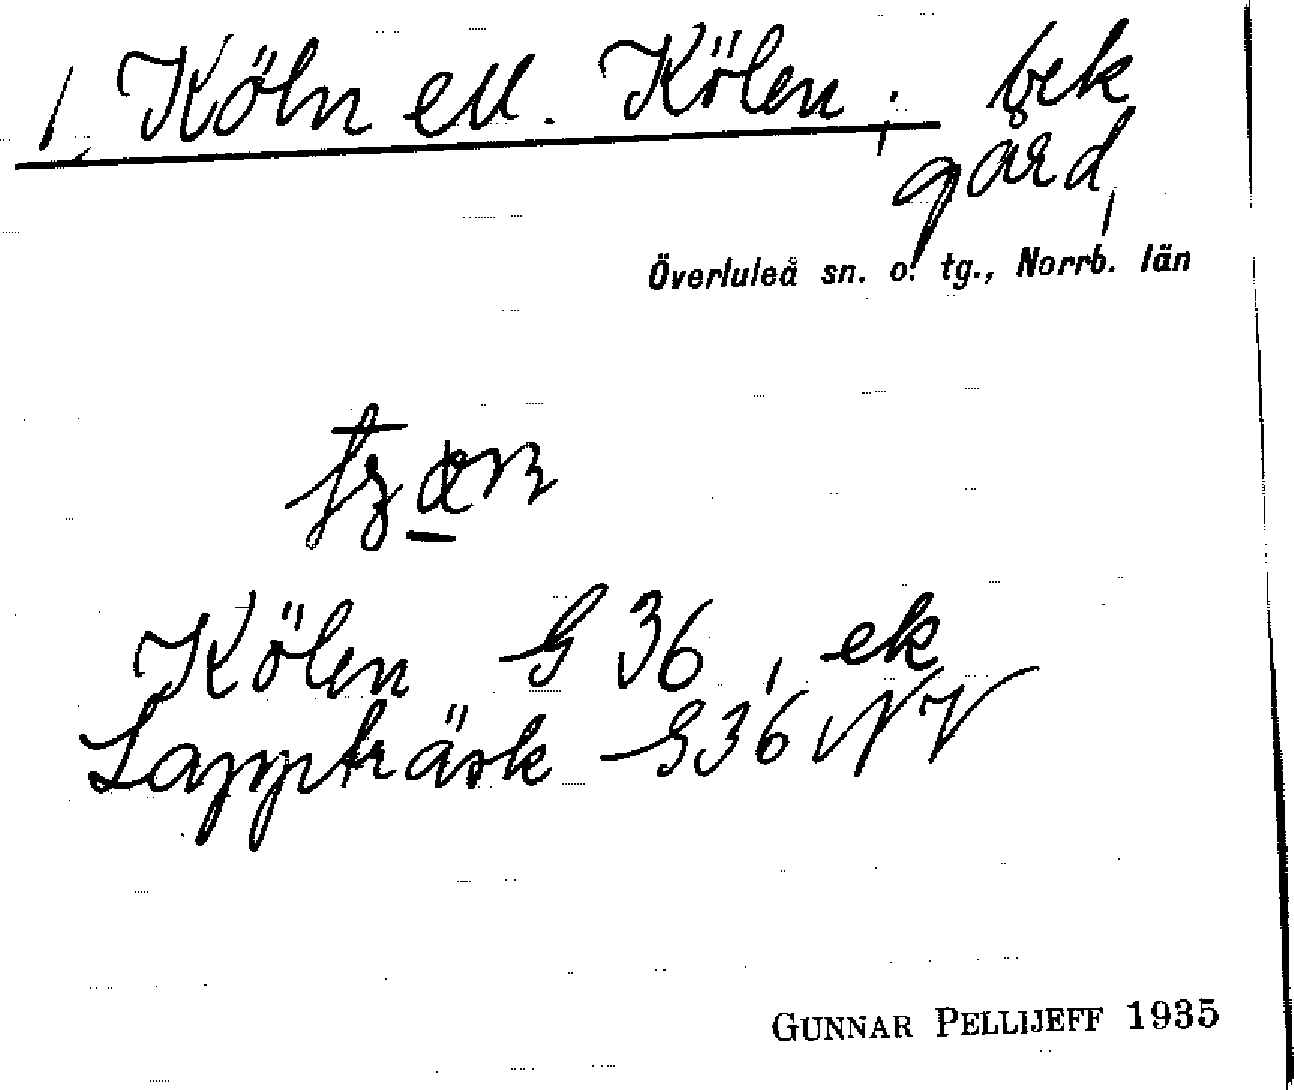 1, Köln ell. Kölen, bek
gård,
Överluleå sn. o. tg., Norrb. län
Kölen G 36, ek
Lappträsk G36 NV
GUNNAR PELLIJEFF 1935